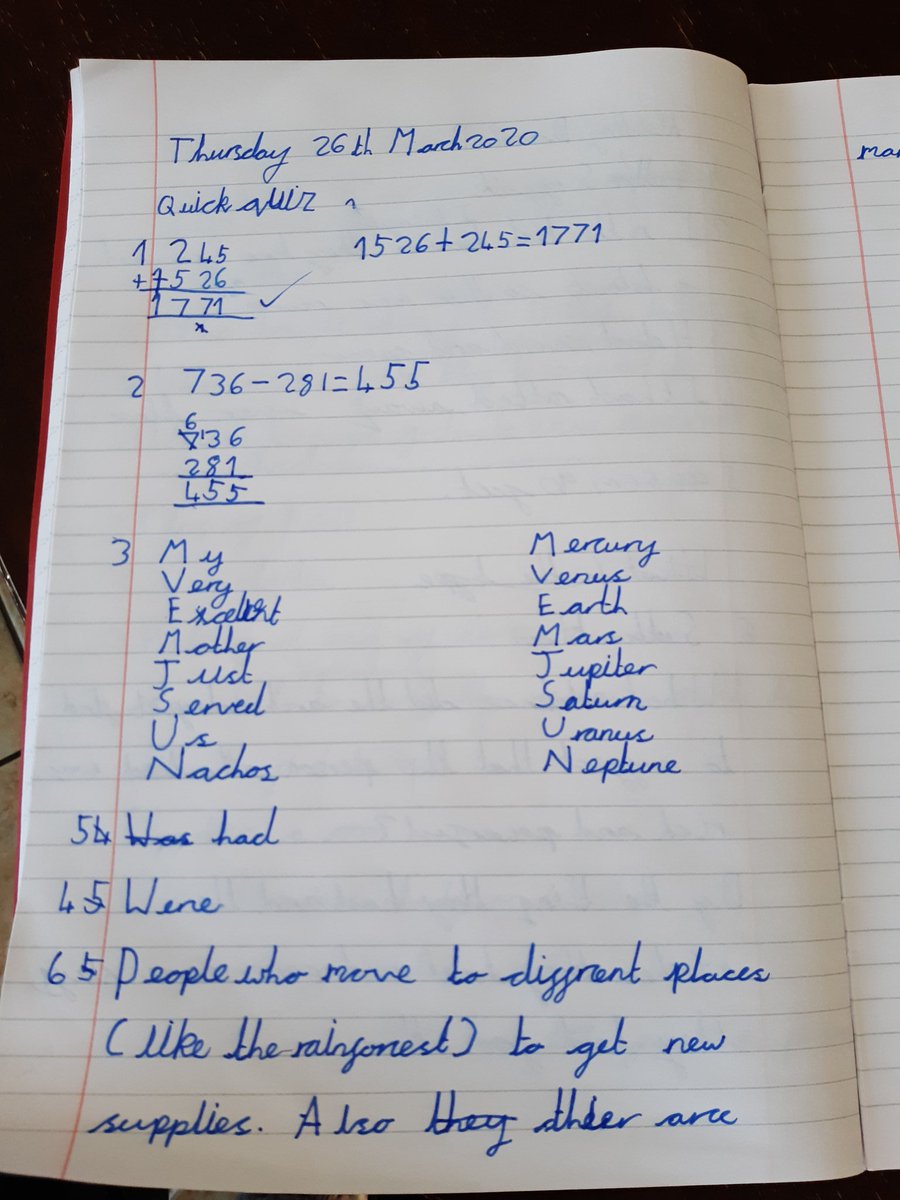 Thursday 26th March 2020
Quick quiz
1 245 1526+245=1771
+1526
1771
2 736-281=455
6
7'36
281
455
3 My Mercury
Very Venus
Excellent Earth
Mother Mars
Just Jupiter
Served Saturn
Us Uranus
Nachos Neptune
5 Was had
4 5 Were
6 5 People who move to diffrent places
(like the rainforest) to get new
supplies. Also they thier are
mar